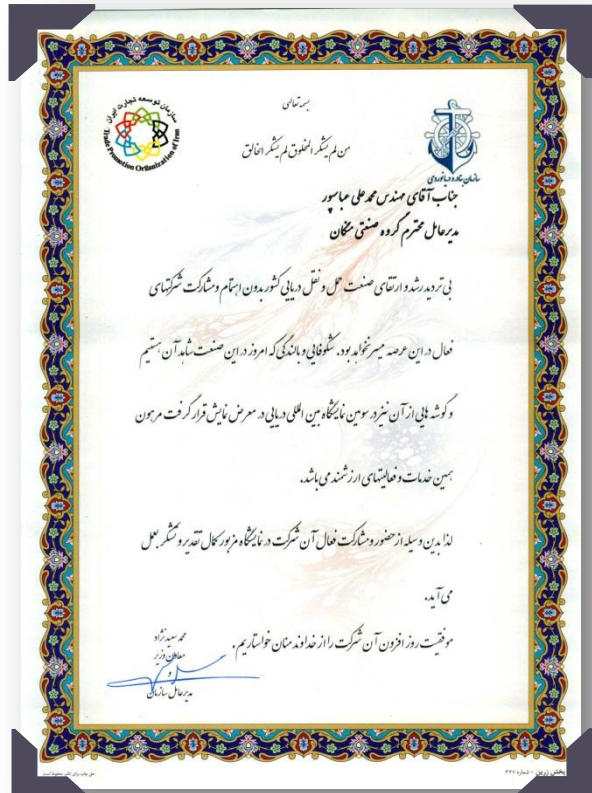 بسمه تعالی
من لم یشکر المخلوق لم یشکر الخالق
سازمان توسعه تجارت ایران
Trade Promotion Organization of Iran
سازمان بنادر و دریانوردی
جناب آقای مهندس محمد علی عباسپور
مدیرعامل محترم گروه صنعتی منگان
بی تردید رشد و ارتقای صنعت حمل و نقل دریایی کشور بدون اهتمام و مشارکت شرکتهای
فعال در این عرصه میسر نخواهد بود. شکوفایی و بالندگی که امروز در این صنعت شاهد آن هستیم
و گوشه هایی از آن نیز در سومین نمایشگاه بین المللی دریایی در معرض نمایش قرار گرفت مرهون
همین خدمات و فعالیتهای ارزشمند می باشد.
لذا بدین وسیله از حضور و مشارکت فعال آن شرکت در نمایشگاه مزبور کمال تقدیر و تشکر بعمل
می آید.
موفقیت روز افزون آن شرکت را از خداوند منان خواستاریم.
محمد سعید نژاد
معاون وزیر
و
مدیرعامل سازمان
پخش زرین - شماره ۲۴۷
حق چاپ برای ناشر محفوظ است